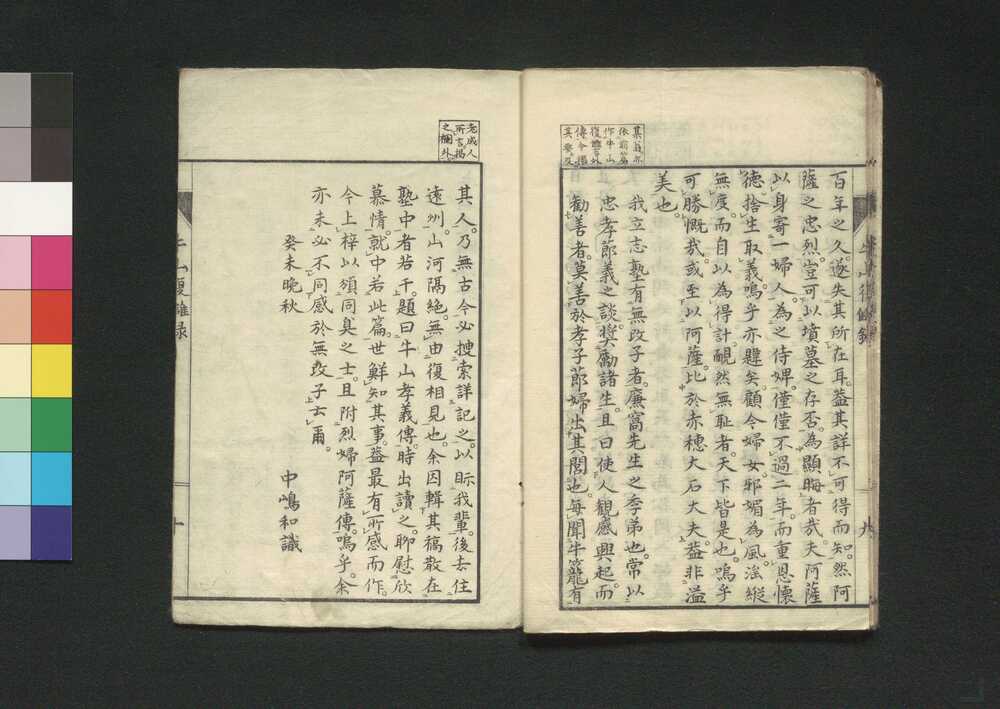 百年之久。遂失其所在耳。蓋其詳不可得而知。然阿
薩之忠烈。豈可以墳墓之存否。為顯晦者哉。夫阿薩
以身寄一婦人。為之侍婢。僅僅不過二年。而重恩懷
德。捨生取義。嗚乎亦難矣。顧今婦女。邪媚為風。淫縱
無度。而自以為得計。靦然無恥者。天下皆是也。嗚乎
可勝慨哉。或至以阿薩。比於赤穗大石大夫。蓋非溢
美也。
我立志塾有無改子者。廉窩先生之季弟也。常以
忠孝節義之談。奨勵諸生。且曰使人観感興起。而
勧善者。莫善於孝子節婦出其閭也。毎聞牛籠有
老成人
所言掲
之欄外
其人。乃無古今必捜索詳記之。以眎我輩。後去住
遠州。山河隔絶。無由復相見也。余因輯其稿散在
塾中者若干。題曰牛山孝義傳。時出讀之。聊慰欣
慕情。就中若此篇。世鮮知其事。蓋最有所感而作。
今上梓以頒同臭之士。且附烈婦阿薩傳。嗚乎。余
亦未必不同感於無改子云爾。
癸未晩秋
中嶋和識